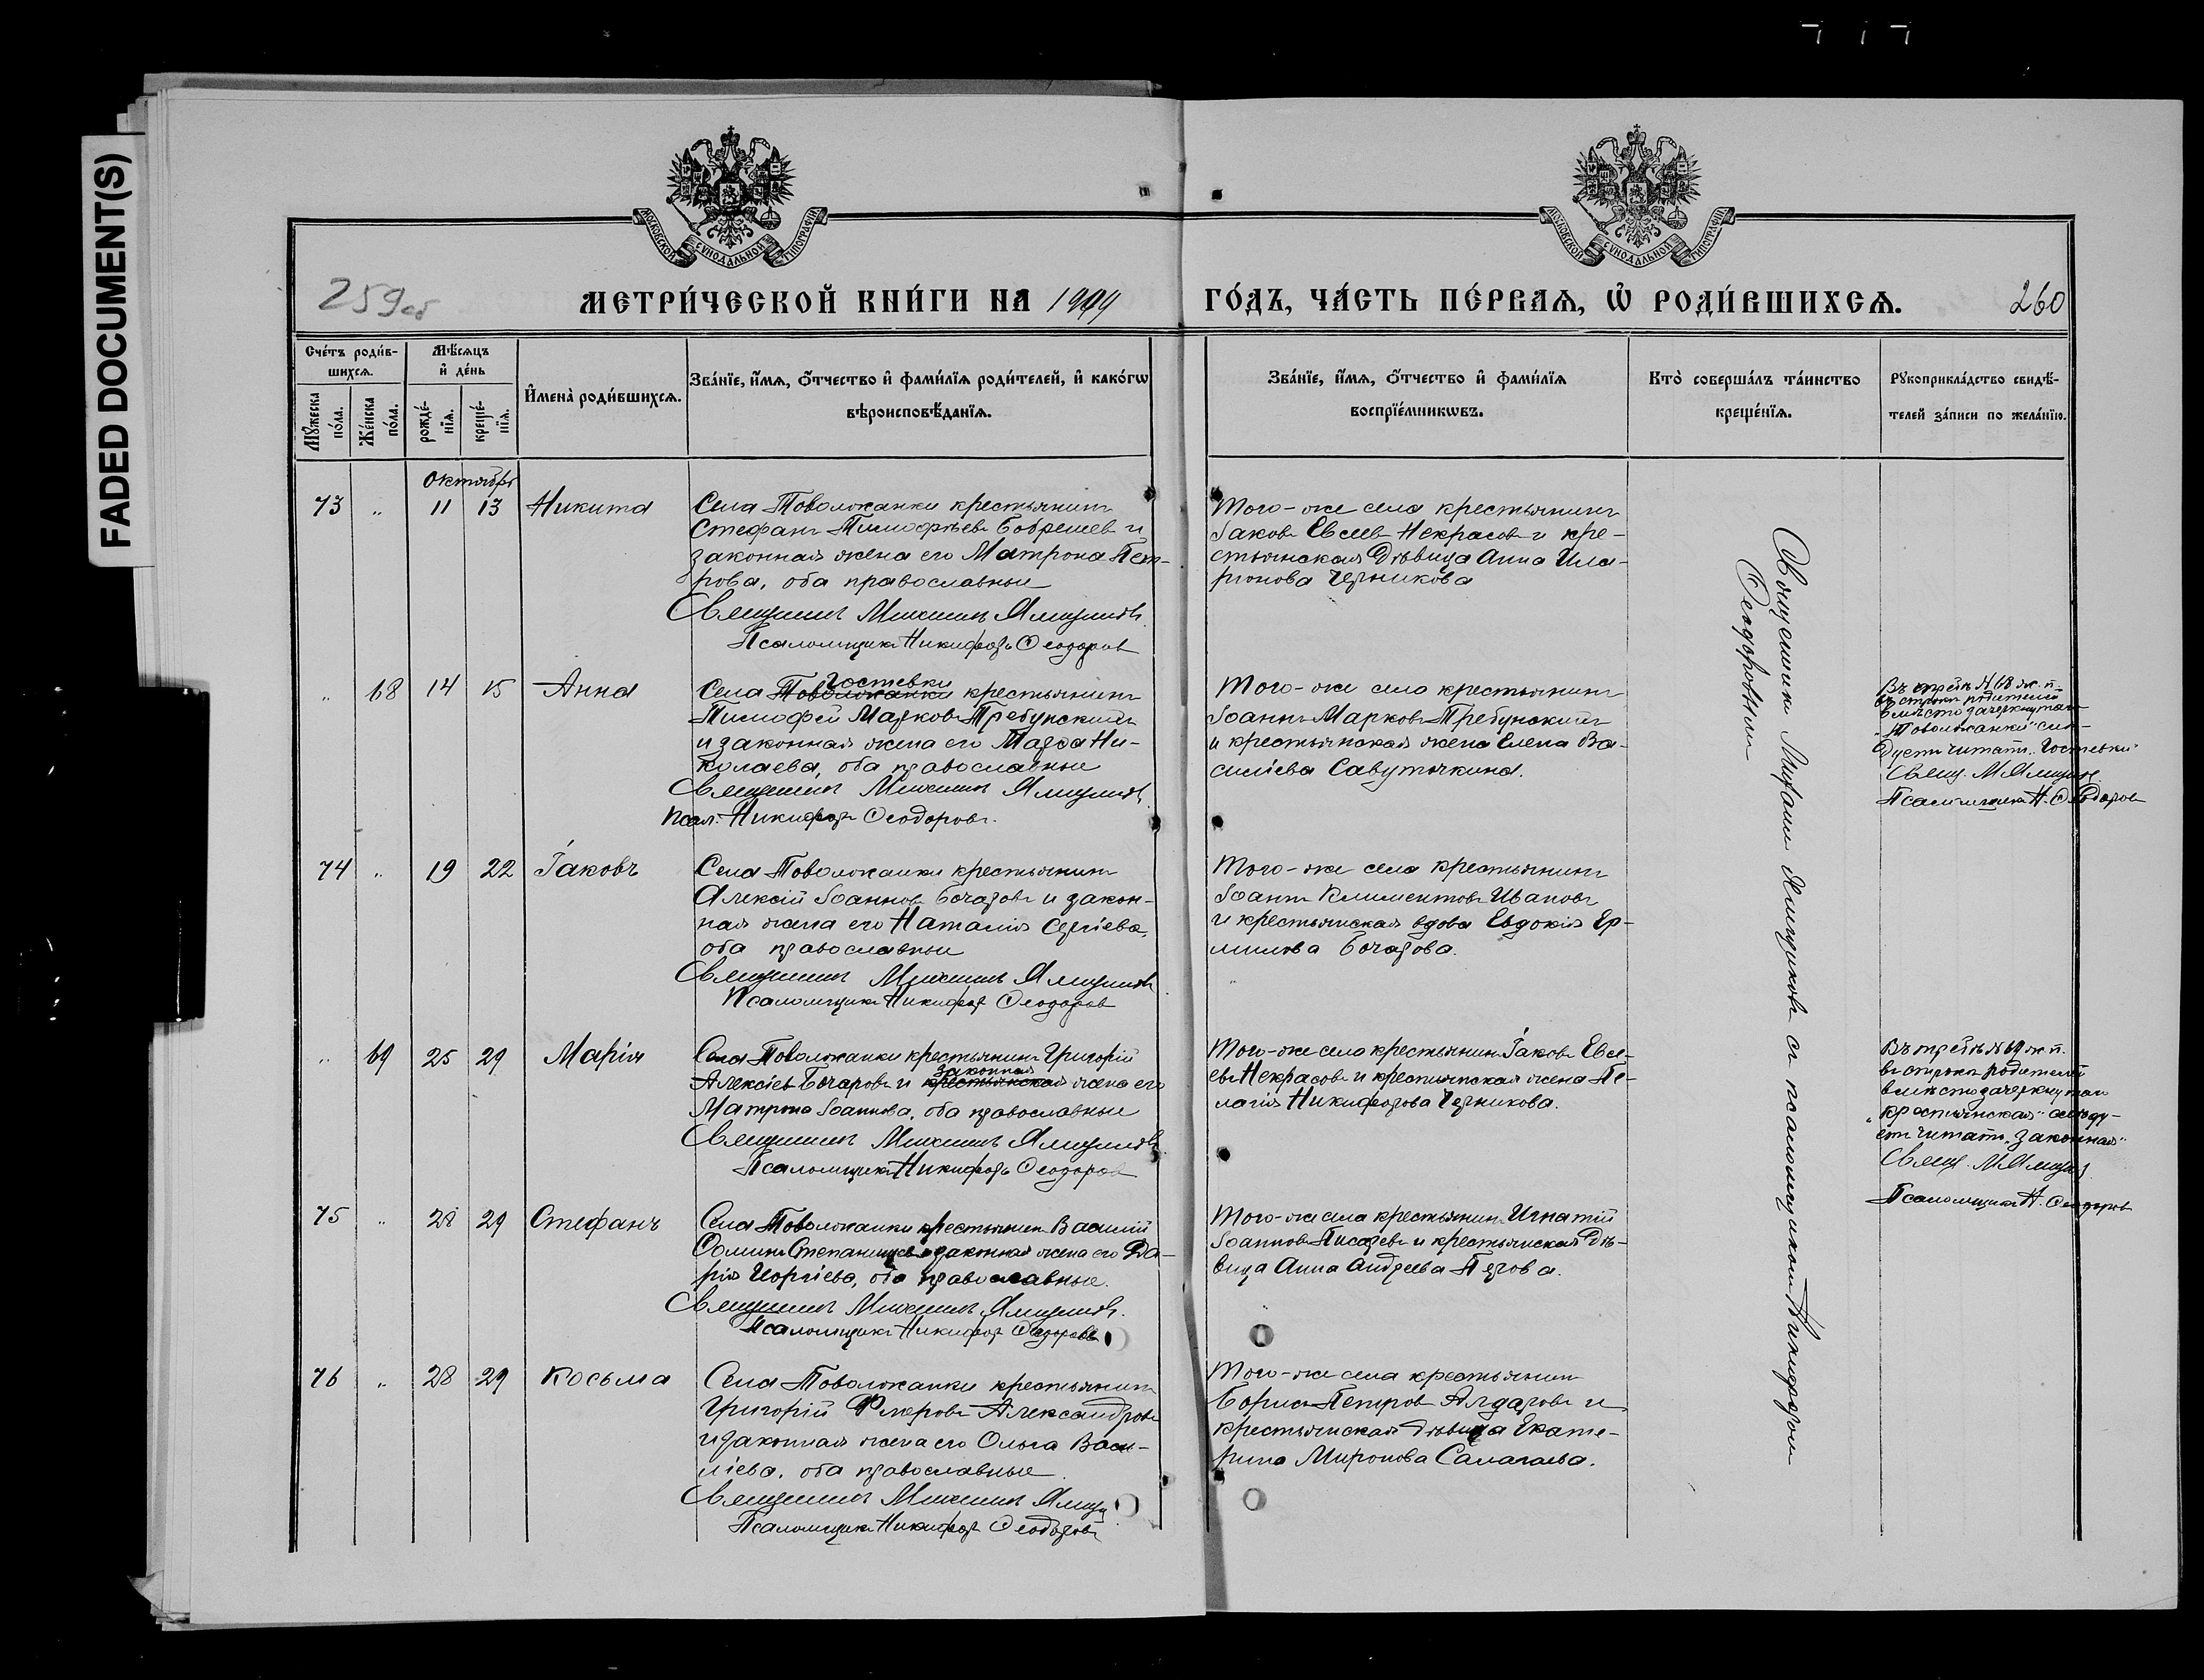 FADED DOCUMENT(S)
МОСКОВСКОЙ СѴНОДАЛЬНОЙ ТИПОГРАФІИ
МОСКОВСКОЙ СѴНОДАЛЬНОЙ ТИПОГРАФІИ
259об
МЕТРИ́ЧЕСКОЙ КНИ́ГИ НА 1909
ГО́ДЪ, ЧА́СТЬ ПЕ́РВАЯ, Ѡ РОДИ́ВШИХСЯ.
260
Сче́тъ роди́в-
шихся.
Мѣ́сяцъ
и де́нь
Мꙋ́жеска
по́ла.
Же́нска
по́ла.
рожде́-
нїя.
креще́-
нїя.
Имена̀ роди́вшихся.
Зва́нїе, и́мя, ѻ́тчество и фами́лїя роди́телей, и како́гѡ
вѣроисповѣ́данїя.
Зва́нїе, и́мя, ѻ́тчество и фами́лїя
воспрїе́мникѡвъ.
Кто̀ соверша́лъ та́инство
креще́нїя.
Рꙋкоприкла́дство свидѣ́-
телей за́писи по жела́нїю.
Октябрь
73 " 11 13 Никита
Села Поволжанки крестьянинъ
Стефанъ Тимофѣевъ Бобрешев и
законная жена его Матрона Пет-
рова, оба православные
Священникъ Михаилъ Ямщиковъ
Псаломщикъ Никифоръ Ѳеодоровъ
Того-же села крестьянинъ
Іаковъ Евсеев Некрасовъ и кре-
стьянская дѣвица Анна Ила-
ріонова Черникова
" 68 14 15 Анна
Гостевки
Села Поволжанки крестьянинъ
Тимофей Марков Требунскій
и законная жена его Марѳа Ни-
колаева, оба православные
Священникъ Михаилъ Ямщиковъ
Псал. Никифоръ Ѳеодоровъ.
Того-же села крестьянинъ
Іоаннъ Марковъ Требунскій
и крестьянская жена Елена Ва-
силіева Савуточкина.
Въ стр№ 68 ж. п.
въ строкѣ родителей
вмѣсто зачеркнутаго
"Поволжанки" слѣ-
дует читать "Гостевки"
Свящ. М Ямщик
Псаломщикъ Н. Ѳеодоров
74 " 19 22 Іаковъ
Села Поволжанки крестьянинъ
Алексій Іоаннов Бочаровъ и закон-
ная жена его Наталія Сергіева,
оба православные
Священникъ Михаилъ Ямщиковъ
Псаломщикъ Никифоръ Ѳеодоровъ
Того-же села крестьянинъ
Іоаннъ Климентовъ Ивановъ
и крестьянская вдова Евдокія Ер-
милова Бочарова.
" 69 25 29 Марія
Села Поволжанки крестьянинъ Григорій
законная
Алексіевъ Бочаровъ и крестьянская жена его
Матрона Іоаннова, оба православные
Священникъ Михаилъ Ямщиковъ
Псаломщикъ Никифоръ Ѳеодоровъ
Того-же села крестьянинъ Іаковъ Евсе-
евъ Некрасовъ и крестьянская жена Пе-
лагія Никифорова Черникова.
№ 69 ж. п.
въ строкѣ родителей
вмѣсто зачеркнутаго
"крестьянская" слѣду-
етъ читать "законная"
Свящ. М Ямщик
Псаломщикъ Н. Ѳеодоров
75 " 28 29 Стефанъ
Села Поволжанки крестьянинъ Василій
Ѳоминъ Степанищевъ и законная жена его Да-
рія Георгіева, оба православные.
Священникъ Михаилъ Ямщиковъ.
Псаломщикъ Никифоръ Ѳеодоровъ
Того-же села крестьянинъ Игнатій
Іоанновъ Писаревъ и крестьянская дѣ-
вица Анна Андреева Перова.
76 " 28 29 Косьма
Села Поволжанки крестьянинъ
Григорій Флоровъ Александровъ
и законная жена его Ольга Васи-
ліева, оба православные.
Священникъ Михаилъ Ямщ
Псаломщикъ Никифоръ Ѳеодоровъ
Того-же села крестьянинъ
Борисъ Петров Алдаровъ и
крестьянская дѣвица Екате-
рина Миронова Салагаева.
Священникъ Михаилъ Ямщиковъ съ псаломщикомъ Никифоромъ
Ѳеодоровымъ